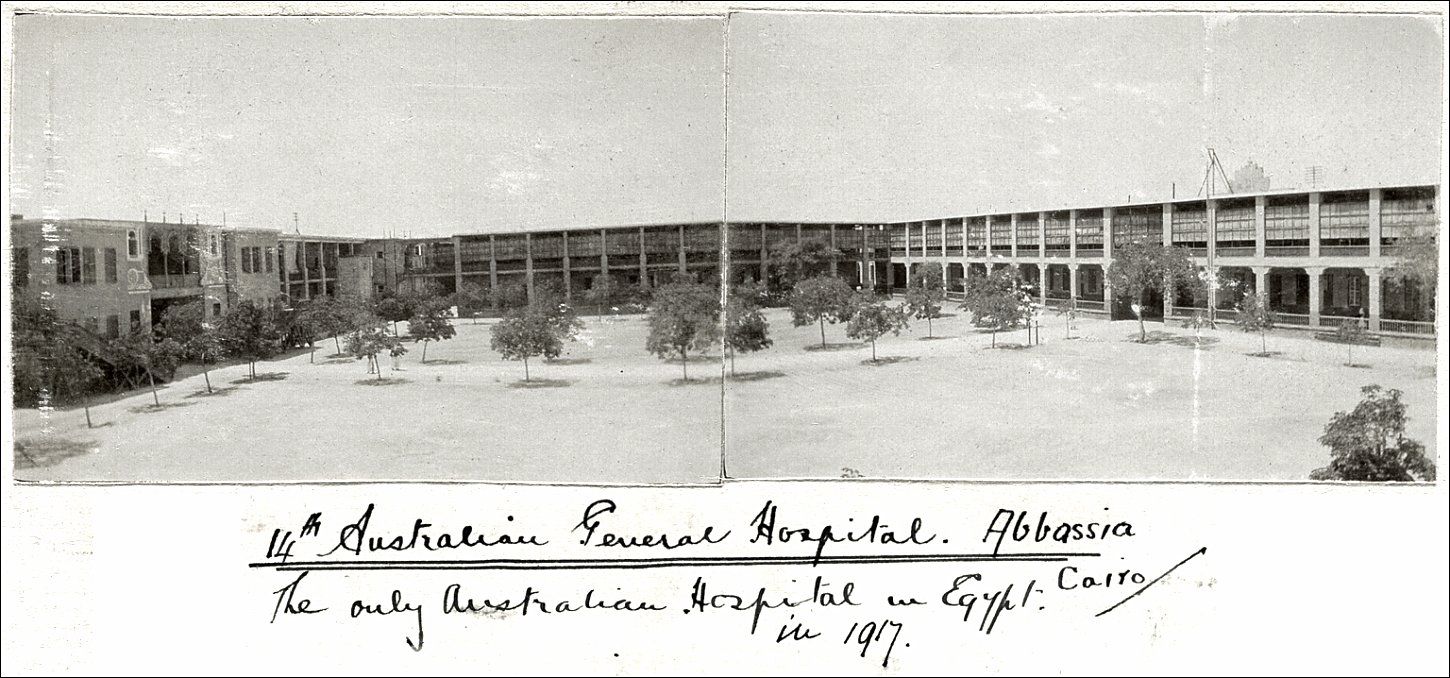 14th Australian General Hospital. Abbassia
Cairo
The only Australian Hospital in Egypt.
in 1917.